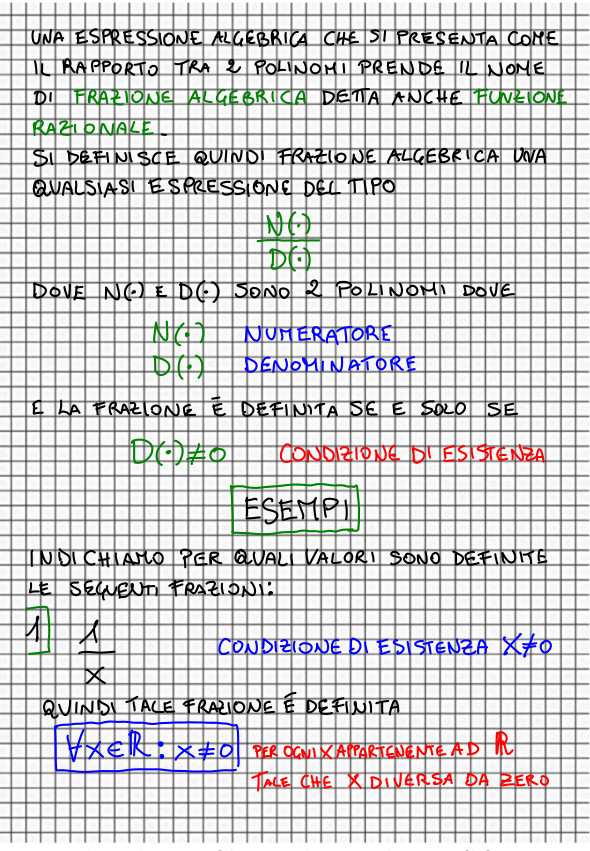 UNA ESPRESSIONE ALGEBRICA CHE SI PRESENTA COME
IL RAPPORTO TRA 2 POLINOMI PRENDE IL NOME
DI FRAZIONE ALGEBRICA DETTA ANCHE FUNZIONE
RAZIONALE.
SI DEFINISCE QUINDI FRAZIONE ALGEBRICA UNA
QUALSIASI ESPRESSIONE DEL TIPO
N(·)
D(·)
DOVE N(·) E D(·) SONO 2 POLINOMI DOVE
N(·) NUMERATORE
D(·) DENOMINATORE
E LA FRAZIONE É DEFINITA SE E SOLO SE
D(·)≠0 CONDIZIONE DI ESISTENZA
ESEMPI
INDICHIAMO PER QUALI VALORI SONO DEFINITE
LE SEGUENTI FRAZIONI:
1 1
X
CONDIZIONE DI ESISTENZA X≠0
QUINDI TALE FRAZIONE É DEFINITA
∀x∈ℝ: x≠0 PER OGNI X APPARTENENTE AD ℝ
TALE CHE X DIVERSA DA ZERO